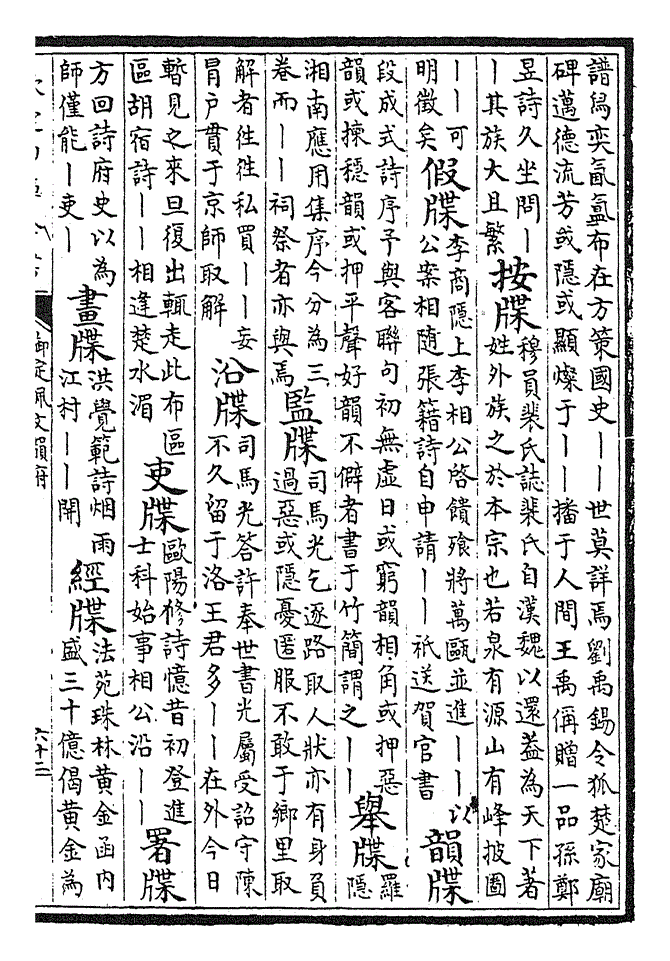 譜舄奕氤氳布在方策國史丨丨世莫詳焉劉禹錫令狐楚家廟
碑邁德流芳或隱或顯燦于丨丨播于人間王禹偁贈一品孫鄭
昱詩久坐問丨
丨其族大且繁
按牒
穆員裴氏誌裴氏自漢魏以還蓋為天下著
姓外族之於本宗也若泉有源山有峰披圖
丨丨可
明徵矣
假牒
李商隱上李相公啓饋飱將萬甌並進丨丨以
公案相隨張籍詩自申請丨丨祇送賀官書
韻牒
段成式詩序予與客聯句初無虛日或窮韻相角或押惡
韻或揀穩韻或押平聲好韻不僻者書于竹簡謂之丨丨
舉牒
羅
隱
湘南應用集序今分為三
卷而丨丨祠祭者亦與焉
監牒
司馬光乞逐路取人狀亦有身負
過惡或隱憂匿服不敢于鄉里取
解者徃徃私買丨丨妄
冐户貫于京師取解
沿牒
司馬光答許奉世書光屬受詔守陳
不久留于洛王君多丨丨在外今日
暫見之來旦復出輒走此布區
區胡宿詩丨丨相逢楚水湄
吏牒
歐陽修詩憶昔初登進
士科始事相公沿丨丨
署牒
方回詩府史以為
師僅能丨吏丨
畫牒
洪覺範詩烟雨
江村丨丨開
經牒
法苑珠林黃金函内
盛三十億偈黃金為
御定佩文韻府
六十三